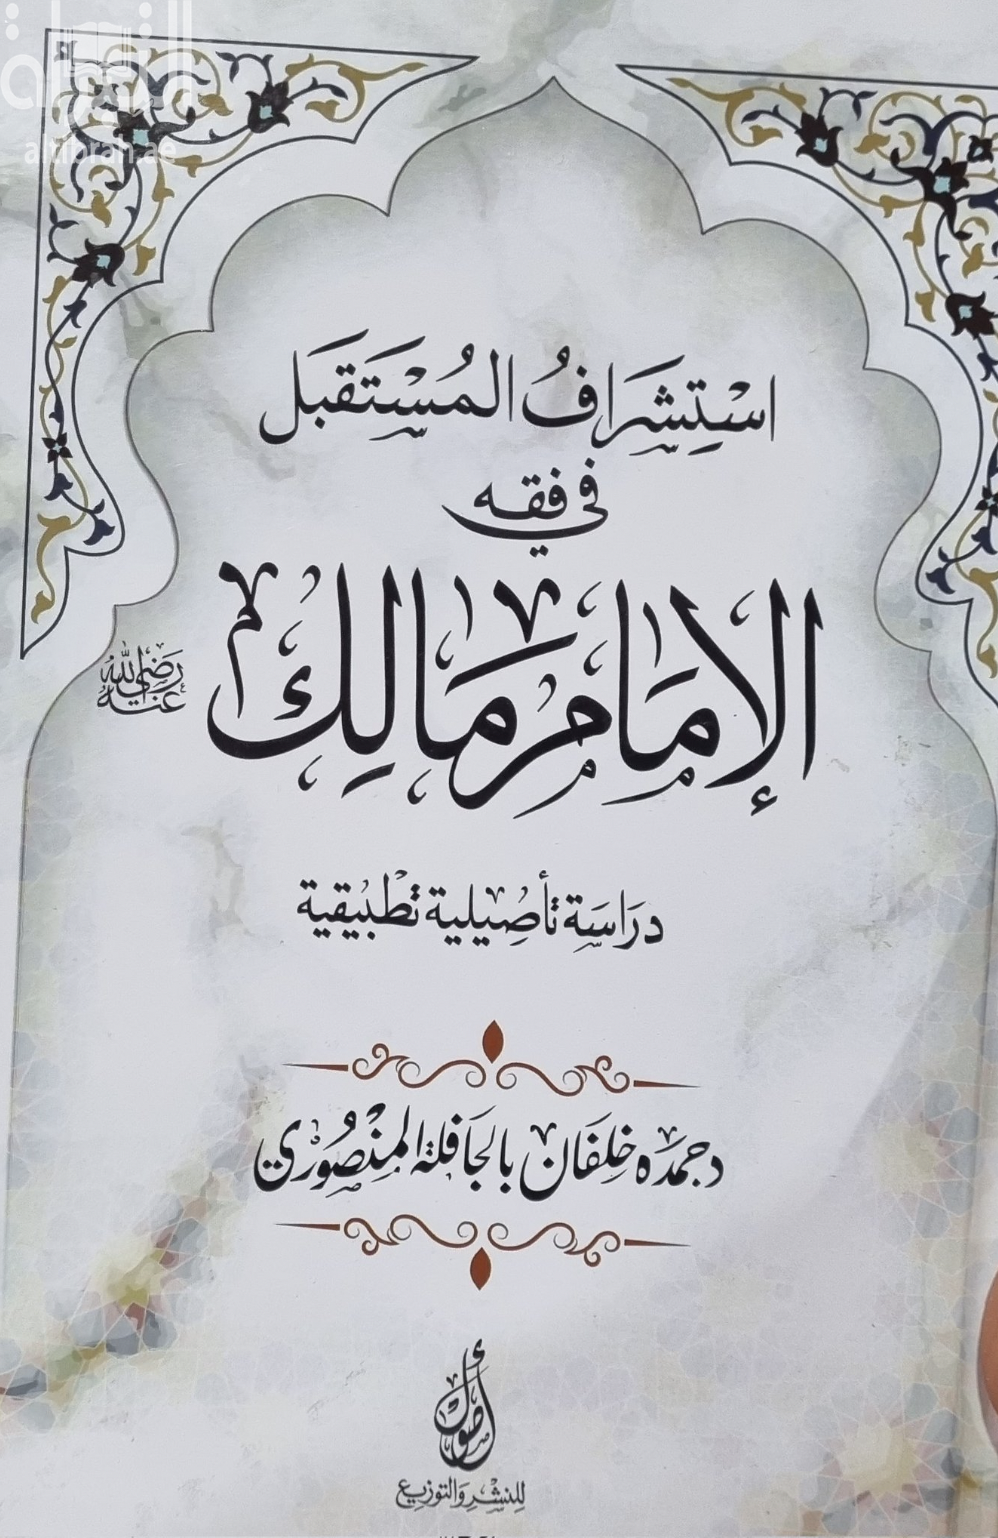 التبراة
altibrah.ae
اسْتِشْرَافُ المُسْتَقبَل
في فقه
الإمَام مَالِك
رَضِيَ اللهُ عَنْهُ
دِرَاسَة تأصِيلية تطْبِيقية
د حمده خلفان بالجافلة المنصُوري
أصول
للنشر والتوزيع